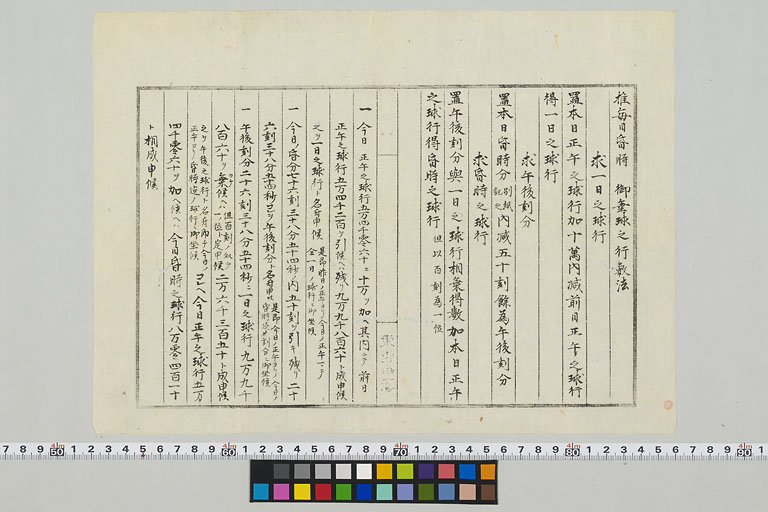 推毎日昏時 御垂球之行數法
求一日之球行
置本日正午之球行加十萬內減前日正午之球行
得一日之球行
求午後刻分
置本日昏時分別紙記之內減五十刻餘為午後刻分
求昏時之球行
置午後刻分與一日之球行相乗得數加本日正午
之球行得昏時之球行 但以百刻為一位
一 今日 正午之球行五万四千零六十ニ 十万ヲ 加ヘ其内ニテ 前日
正午之球行五万四千二百ヲ引候ヘハ残リ九万九千八百六十ト成申候
之ヲ一日之球行ト名付申候 是即昨日ノ正午ヨリ今日ノ正午マテノ全一日ノ球行ニ御坐候
一 今日ノ昏分七十六刻三十八分五十四秒ノ内五十刻ヲ引キ残リ二十
六刻三十八分五十四秒己ヲ午後刻分ト名付申候 是即今日ノ正午ヨリ今日ノ昏時迄ノ刻分ニ御坐候
一 午後刻分二十六刻三十八分五十四秒ニ一日之球行 九万九千
八百六十ヲ乗候ヘハ 但百刻ノ処ヲ一位ト定申候 二万六千三百五十ト成申候
之ヲ午後之球行ト名付即チ今日ノ正午ヨリ昏時迄ノ球行ニ御坐候 コレヘ今日正午之球行五万
四千零六十ヲ 加ヘ候ヘハ 今日昏時之球行八万零四百一十
ト相成申候